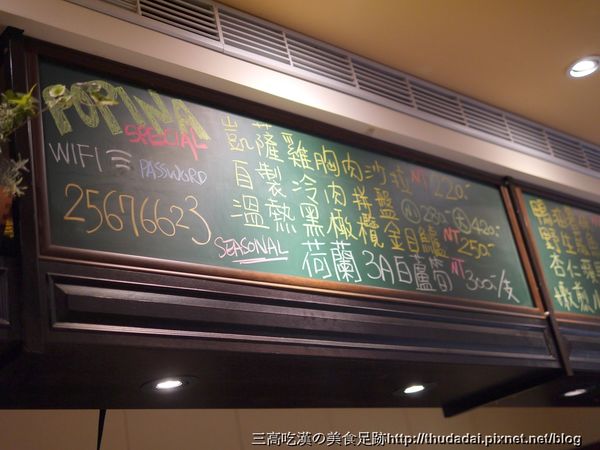 POPINA
SPECIAL
WIFI PASSWORD
25676623
凱薩雞胸肉沙拉 NT 220.-
自製冷肉拼盤 小 280.- 大 420.-
溫熱黑橄欖金目鱸 NT 250.-
SEASONAL 荷蘭3A白蘆筍 NT 300.-/支
杏仁蘋果
三高吃漢の美食足跡http://thudadai.pixnet.net/blog